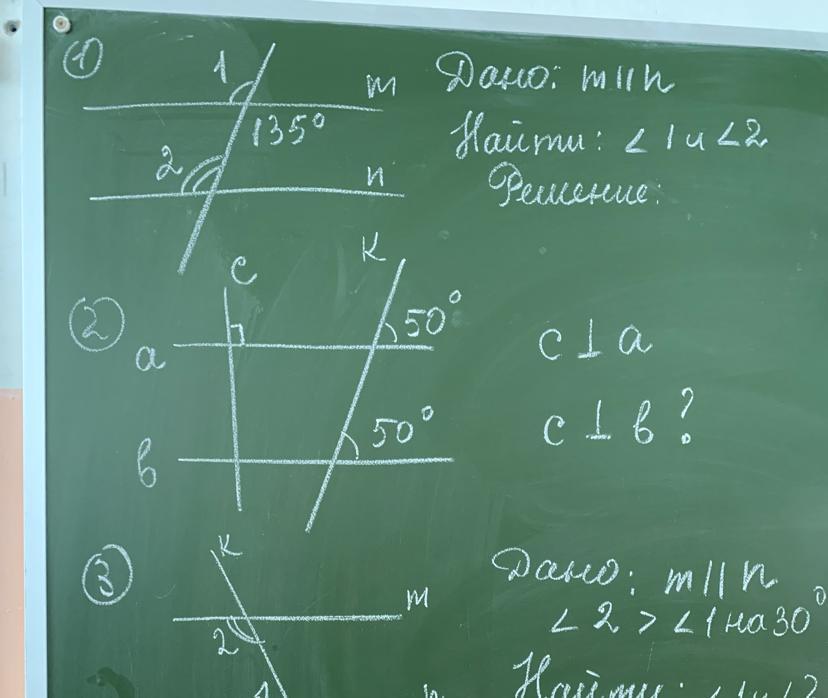 ① 1 m
135°
2 n
Дано: m || n
Найти: ∠1 и ∠2
Решение:
② c к
50°
a
50°
в
c ⊥ a
c ⊥ в ?
③ к
m
2
Дано: m || n
∠2 > ∠1 на 30°
Найти: ∠1 и ∠2